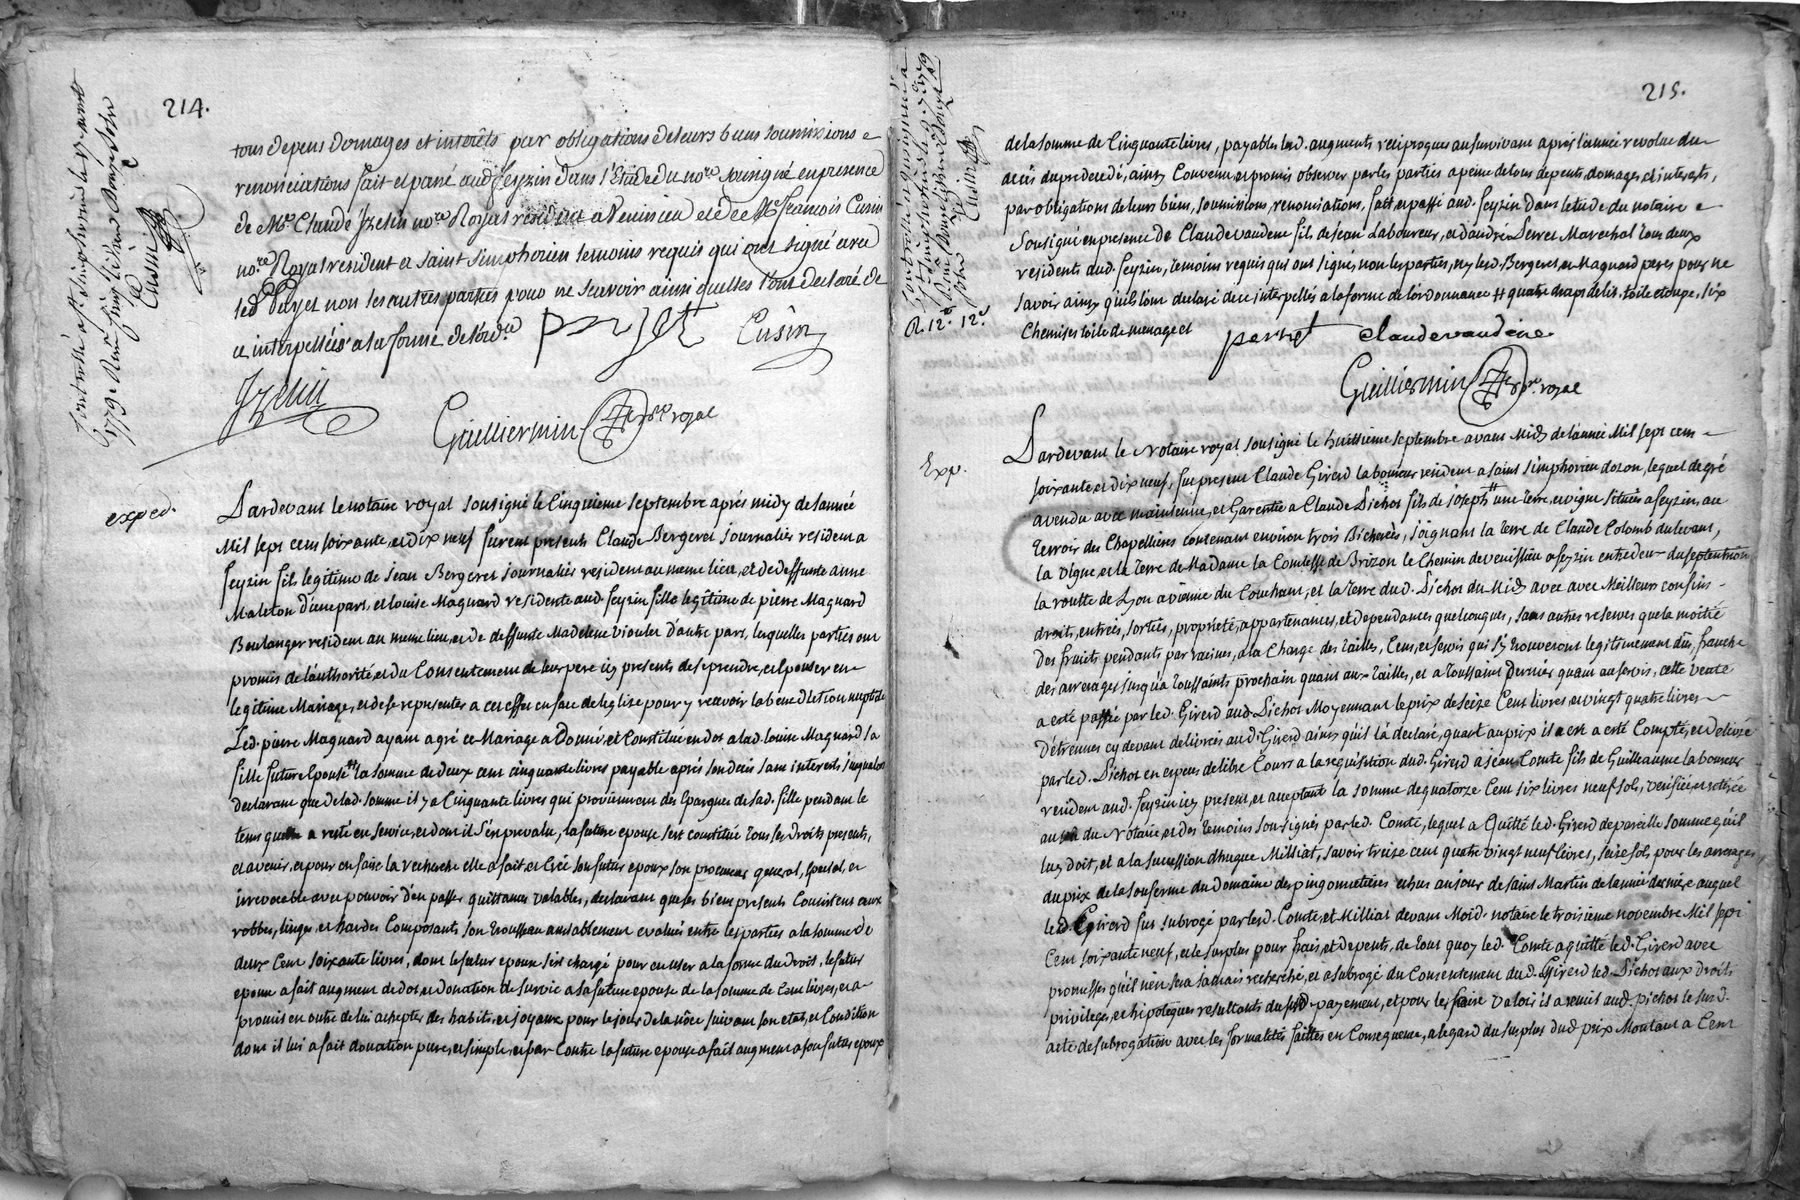 214.
tous depens domages et interêts par obligations de leurs biens soumissions
renonciations fait et passé aud. Feyzin dans l'Etude du no.re soussigné en presence
de M.e Claude Jzelin no.re Royal residant a Venissieu et de M.e francois Cusin
no.re Royal resident a saint simphorien temoins requis qui ont signé avec
led. Payet non les autres parties pour ne scavoir ainsi quelles l'ont declaré de
ce interpellées a la forme de l'ord.ce
Cusin
Jzelin
Guilliermin no.re royal
Controllé a st. simphorien le 17
1779
Cusin
exped.
Pardevant le notaire royal sousigné le Cinquieme septembre après midy de l'année
Mil sept cent soixante et dix neuf furent presents Claude Bergeret journalier resident a
feyzin fils legitime de jean Bergeret journalier resident au meme lieu, et de deffunte anne
Maleton d'une part, et louise Magnard residente aud. feyzin fille legitime de pierre Magnard
Boulanger resident au meme lieu, et de deffunte Madeleine violet d'autre part, lesquelles parties ont
promis de l'authorité et du Consentement de leur pere icy presents de se prendre, et epouser en
legitime Mariage, et de se representer a cet effet en face de l'eglise pour y recevoir la benediction nuptiale
Led. pierre Magnard ayant agré ce Mariage a Donné, et Constitué en dot a lad. louise Magnard sa
fille future Epouse # la somme de deux cent cinquante livres payable après son decès sans interests jusqualors
declarant que de lad. somme il y a Cinquante livres qui proviennent des Epargnes de sad. fille pendant le
tems quelle a resté en service, et dont il s'en prevalu, la future epouse s'est constitué tous ses droits presents,
et avenir, et pour en faire la recherche elle a fait et Créé son futur epoux son procureur general, special, et
irrevocable avec pouvoir d'en passer quittances valables, declarant que ses biens presents Consistent en ses
robbes, linges, et hardes Composants son trousseau amiablement evalués entre les parties a la somme de
deux Cent soixante livres, dont le futur epoux s'est chargé pour en user a la forme du Droit, le futur
epoux a fait augment de dot, et donation de survie a sa future epouse de la somme de Cent livres, et a
promis en outre de lui achepter des habits, et joyaux pour le jour de la nôce suivant son etat, et Condition
dont il lui a fait donation pure, et simple, et par Contre la future epouse a fait augment a son futur epoux
215.
de la somme de Cinquante livres, payables lesd. augments reciproques au survivant après l'année revolue du
decès du predecedé, ainsy Convenu et promis observer par les parties a peine de tous depents, domages, et interests,
par obligations de leurs biens, soumissions, renonciations, fait et passé aud. feyzin dans l'etude du notaire
sousigné en presence de Claude vaudene fils de jean Laboureur, et d'andré Perret Marechal tous deux
residents aud. feyzin, temoins requis qui ont signé, non les parties, ny lesd. Bergeret, et Magnard peres pour ne
savoir ainsy qu'ils l'ont declaré de ce interpellés a la forme de l'ordonnance # quatre draps de lit, toile etoupe, six
Chemises toile de menage et
perret
claude vaudene
Guilliermin no.re royal
1779
Cusin
R. 12.lt 12.s
Exp.
Pardevant le Notaire royal sousigné le huitieme septembre avant Midy de l'année Mil sept cent
soixante et dix neuf, fut present Claude Girerd laboureur resident a saint simphorien dozon, lequel de gré
a vendu avec maintenue, et Garentie a Claude Pichot fils de joseph # une terre, et vigne situées a feyzin, au
terroir des Chapellieres contenant environ trois Bicherées, joignant la terre de Claude Colomb du levant,
la vigne et la terre de Madame la Comtesse de Brizon le Chemin de venissieu a feyzin entre deux du septentrion
la routte de Lyon a vienne du Couchant, et la terre dud. Pichot du Midy avec avec Meilleurs confins
droits, entrées, sorties, proprieté, appartenances, et dependances quelconques, sans autres reserves que la moitié
des fruits pendants par racines, a la Charge des tailles, Cens, et servis qui s'y trouveront legitimement dûs, franche
des arrerages jusqu'a toussaints prochain quant aux tailles, et a toussaint dernier quant au servis, cette vente
a esté passée par led. Girerd aud. Pichot Moyennant le prix de seize Cent livres et vingt quatre livres
D'étrennes cy devant delivrées aud. Girerd ainsy quil l'a declaré, quant au prix il a est a esté Compté, et delivré
par led. Pichot en especes de libre Cours a la requisition dud. Girerd a jean Comte fils de Guilleaume laboureur
resident aud. feyzin icy present, et acceptant la somme de quatorze Cent six livres neuf sols, verifiée, et retirée
au vû du Notaire, et des temoins sousignés par led. Comte, lequel a Quitté led. Girerd de pareille somme qu'il
luy doit, et a la succession d'hugue Milliat, savoir treize cent quatre vingt neuf livres, seize sols pour les arrerages
du prix de la souferme du Domaine des pingonnetieres echus au jour de saint Martin de l'année derniere auquel
led. Girerd fut subrogé par lesd. Comte, et Milliat devant Moid. notaire le troisieme novembre Mil sept
Cent soixante neuf, et le surplus pour frais, et depents, de tout quoy led. Comte a quitté led. Girerd avec
promesses qu'il n'en sera jamais recherché, et a subrogé du Consentement dud. Girerd led. Pichot aux droits
privileges, et hipoteques resultants du susd. payement, et pour les faire valoir il a remis aud. pichot le susd.
acte de subrogation avec les formalités faittes en Consequence, a legard du surplus dud. prix Montant a Cent